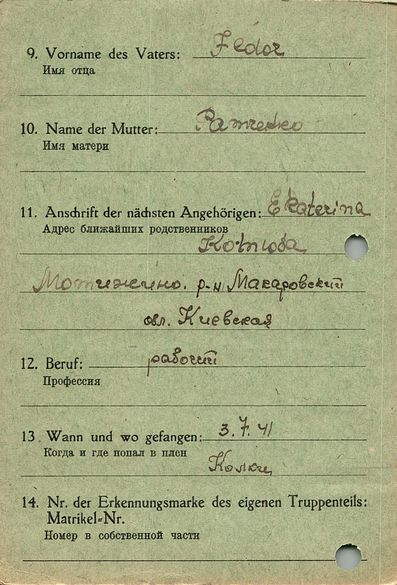 9. Vorname des Vaters: Fedor
Имя отца
10. Name der Mutter:
Имя матери
11. Anschrift der nächsten Angehörigen: Ekaterina
Адрес ближайших родственников
Мотижино. р-н. Макаровский
обл. Киевская
12. Beruf: рабочий
Профессия
13 Wann und wo gefangen: 3.7.41
Когда и где попал в плен
14. Nr. der Erkennungsmarke des eigenen Truppenteils:
Matrikel-Nr.
Номер в собственной части